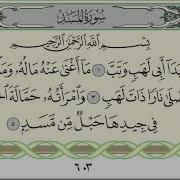 سُورَةُ المَسَدِ
بِسْمِ اللَّهِ الرَّحْمَٰنِ الرَّحِيمِ
يَدَا أَبِي لَهَبٍ وَتَبَّ ١ مَا أَغْنَىٰ عَنْهُ مَالُهُ وَمَ
صْلَىٰ نَارًا ذَاتَ لَهَبٍ ٣ وَامْرَأَتُهُ حَمَّالَةَ الْحَ
فِي جِيدِهَا حَبْلٌ مِّن مَّسَدٍ ٥
٦٠٣